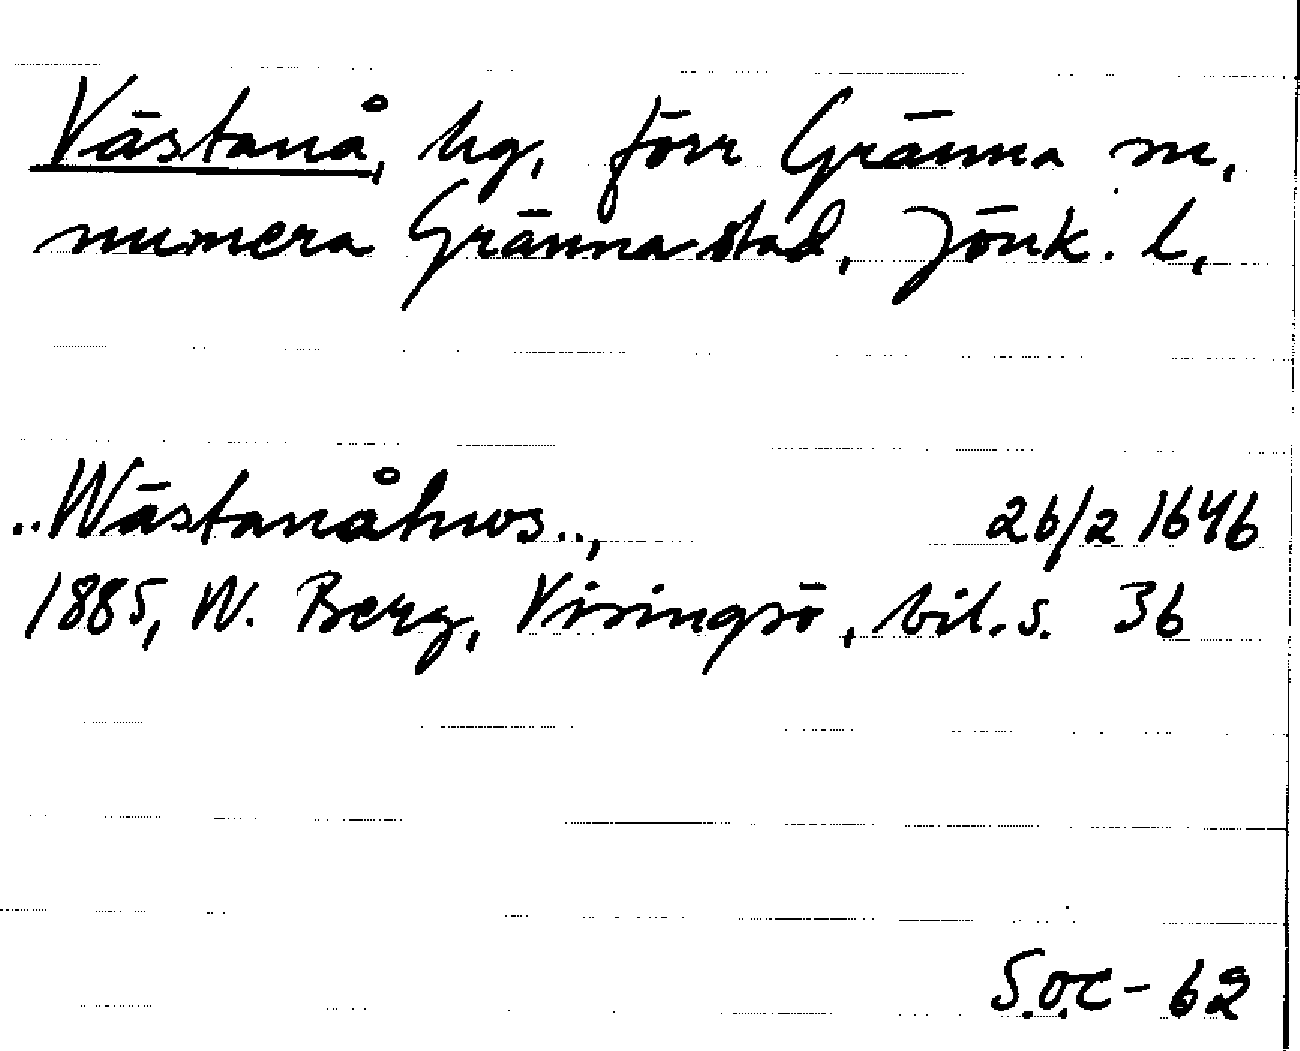 Västanå, hg, förr Gränna sn,
numera Gränna stad, Jönk. l,
..Wästanåhws..,  26/2 1646
1885, W. Berg, Visingsö, bil.s. 36
S.o.c - 62